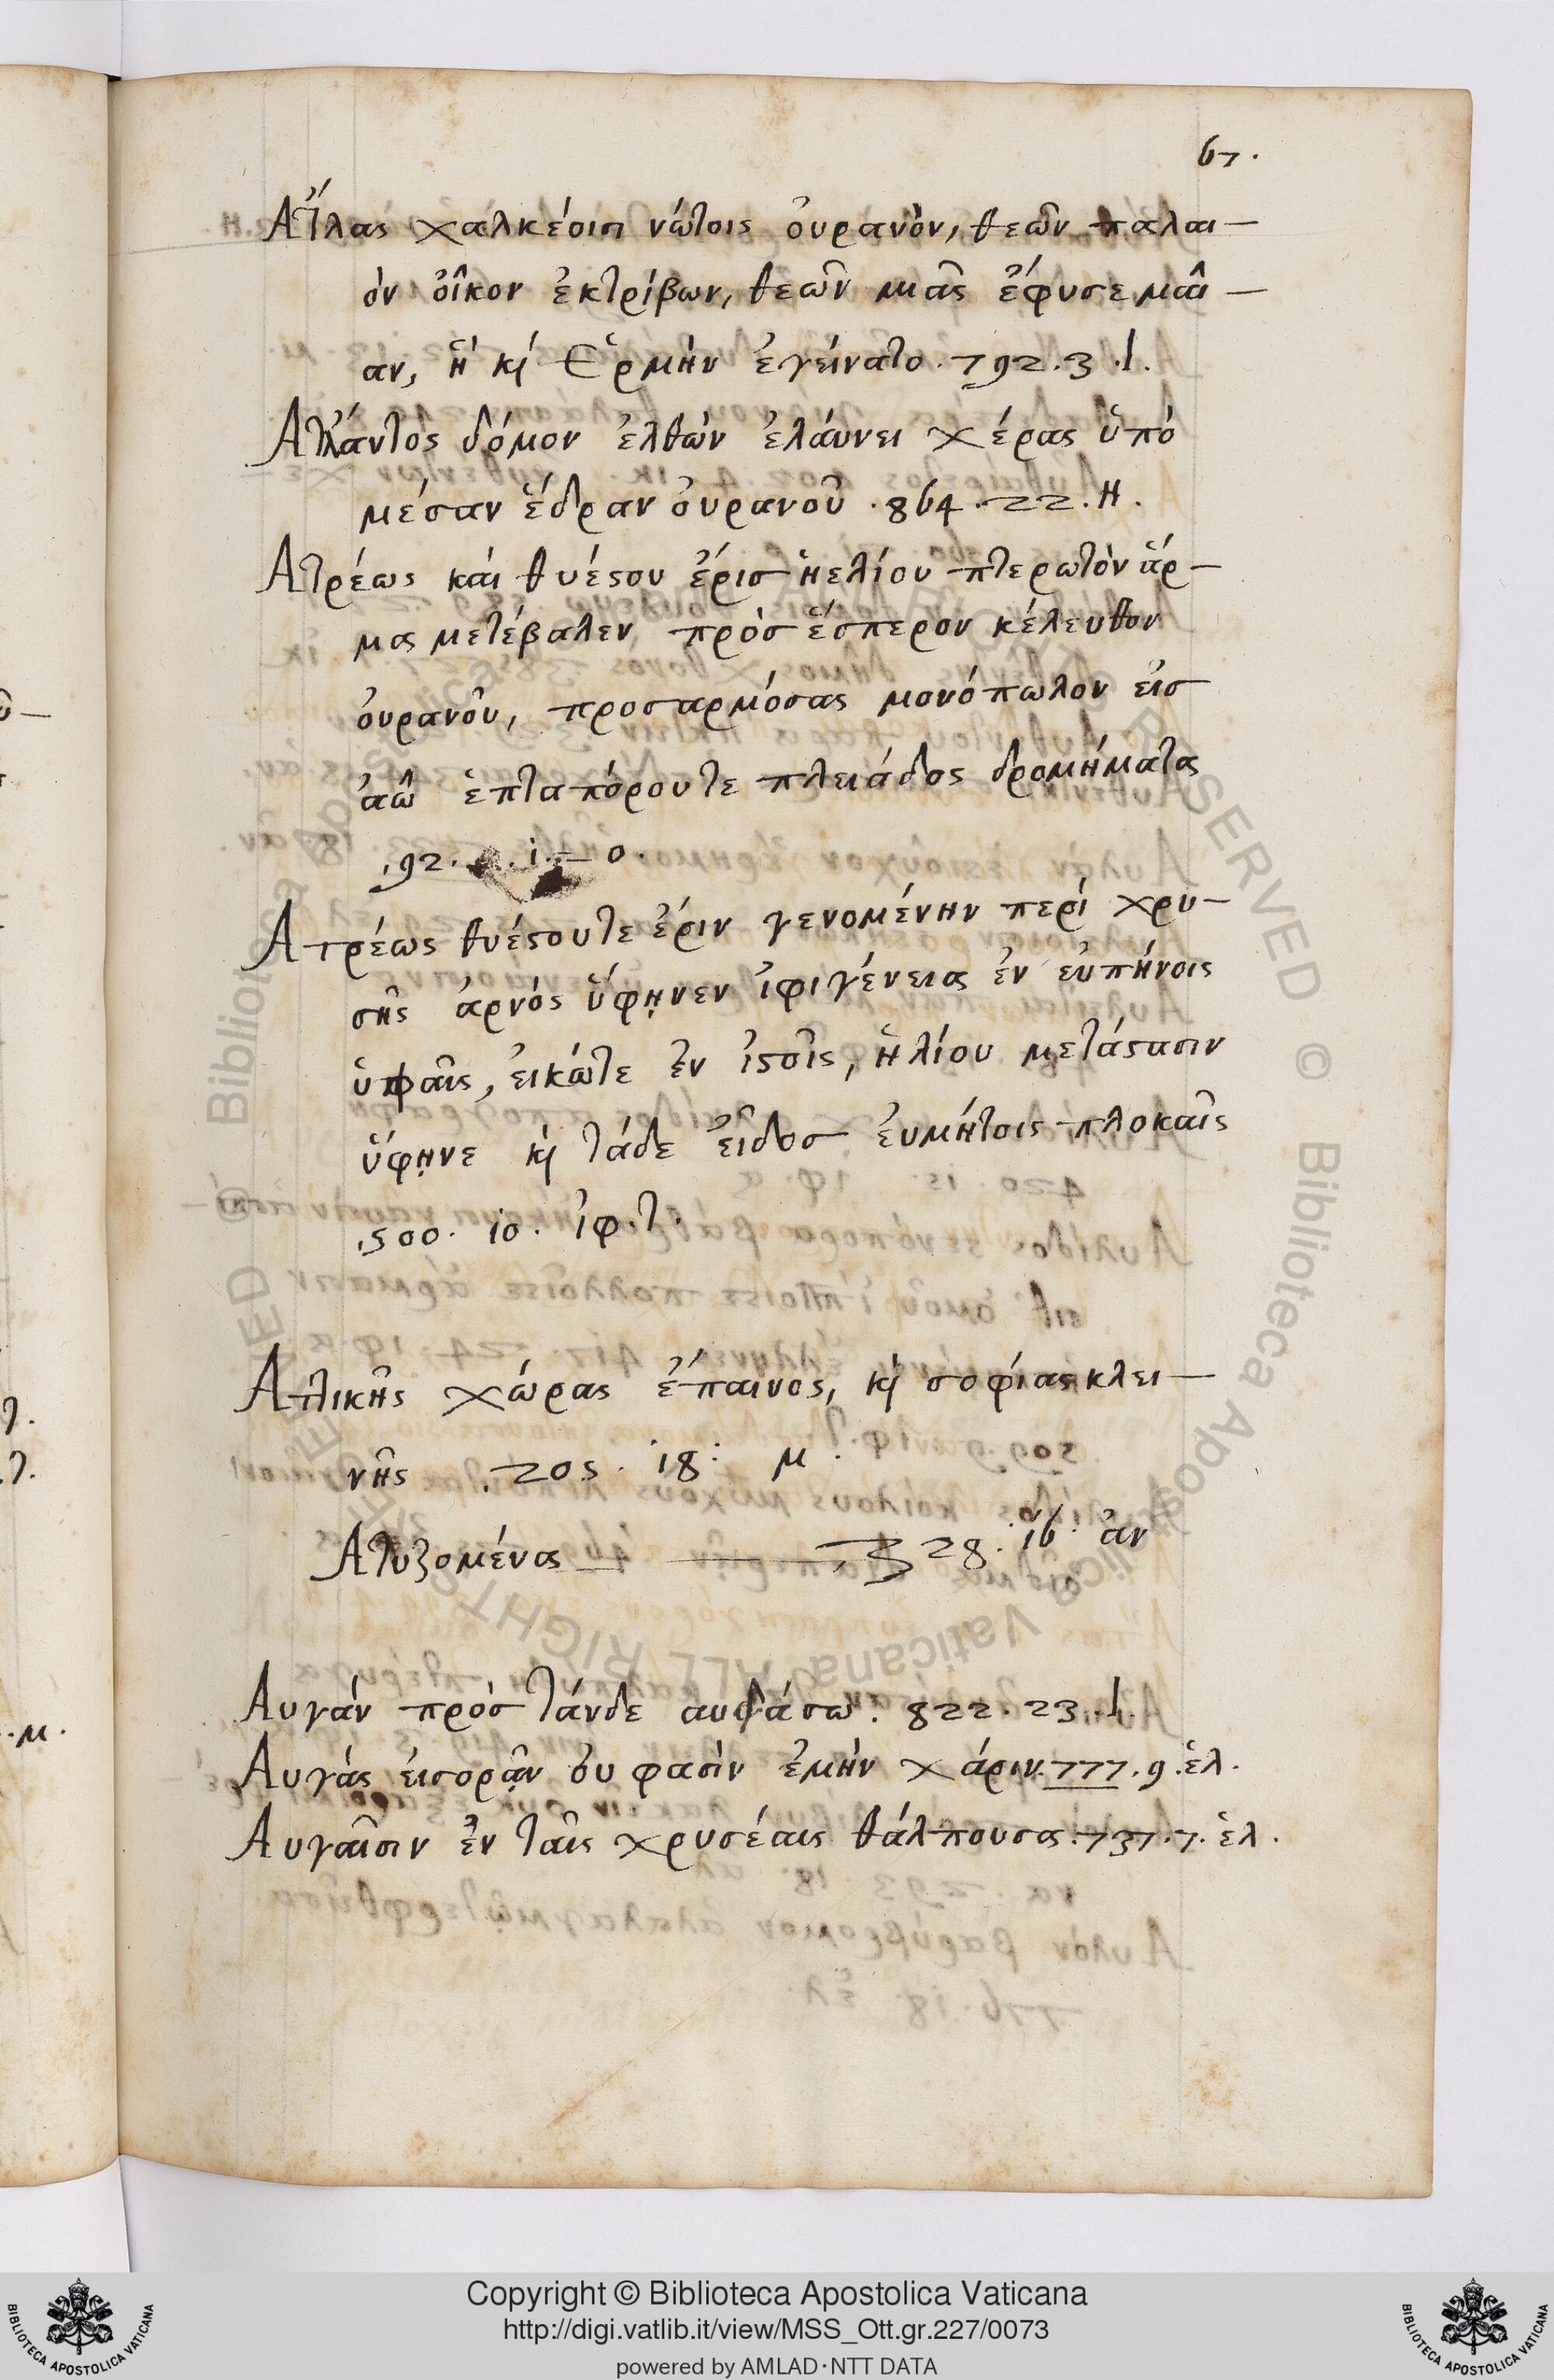 67.
Ἄτλας χαλκέοισι νώτοις ὀυρανὸν, θεῶν παλαι-
ὸν ὀῖκον ἐκτρίβων, θεῶν μιᾶς ἔφυσε μᾶι-
αν, ἣ κὶ Ἑρμὴν ἐγείνατο. 792. 3. ι.
Ατλάντος δόμον ἐλθὼν ἐλάυνει χέρας ὑπὸ
μέσαν ἕδραν ὀυρανοῦ. 864. 22. Η.
Ατρέως καὶ θυέϛου ἔρισ ἡελίου πτερωτὸν ἅρ-
μα μετέβαλεν πρὸσ ἕσπερον κέλευθον
ὀυρανοῦ, προσαρμόσας μονόπωλον εἰσ
ἀῶ ἑπταπόρου τε πλειάδος δρομήματα
,92. i. ο.
Ατρέως θυέϛου τε ἔριν γενομένην περὶ χρυ-
σῆς ἀρνὸς ὕφῃνεν ἰφιγένεια ἐν εὐπήνοις
ὑφαῖς, εικώ τε ἐν ἱϛοῖς, ἡλίου μετάϛασιν
ὕφῃνε κὶ τάδε εἶδοσ ἐυμήτοις πλοκαῖς
,500. 10. ἰφ. τ.
Ατικῆς χώρας ἔπαινος, κὶ σοφίας κλει-
νῆς . 205. 18. μ.
Ατυζομένα — 328. 16. ἀν
Αυγὰν πρὸσ τάνδε αυδάσω. 822. 23. ι.
Αυγὰς ἐισορᾷν ὀυ φασὶν ἐμὴν χάριν. 777. 9. ἑλ.
Αυγαῖσιν ἐν ταῖς χρυσέαις θάλπουσα. 737. 7. ἑλ.
Copyright © Biblioteca Apostolica Vaticana
http://digi.vatlib.it/view/MSS_Ott.gr.227/0073
powered by AMLAD·NTT DATA